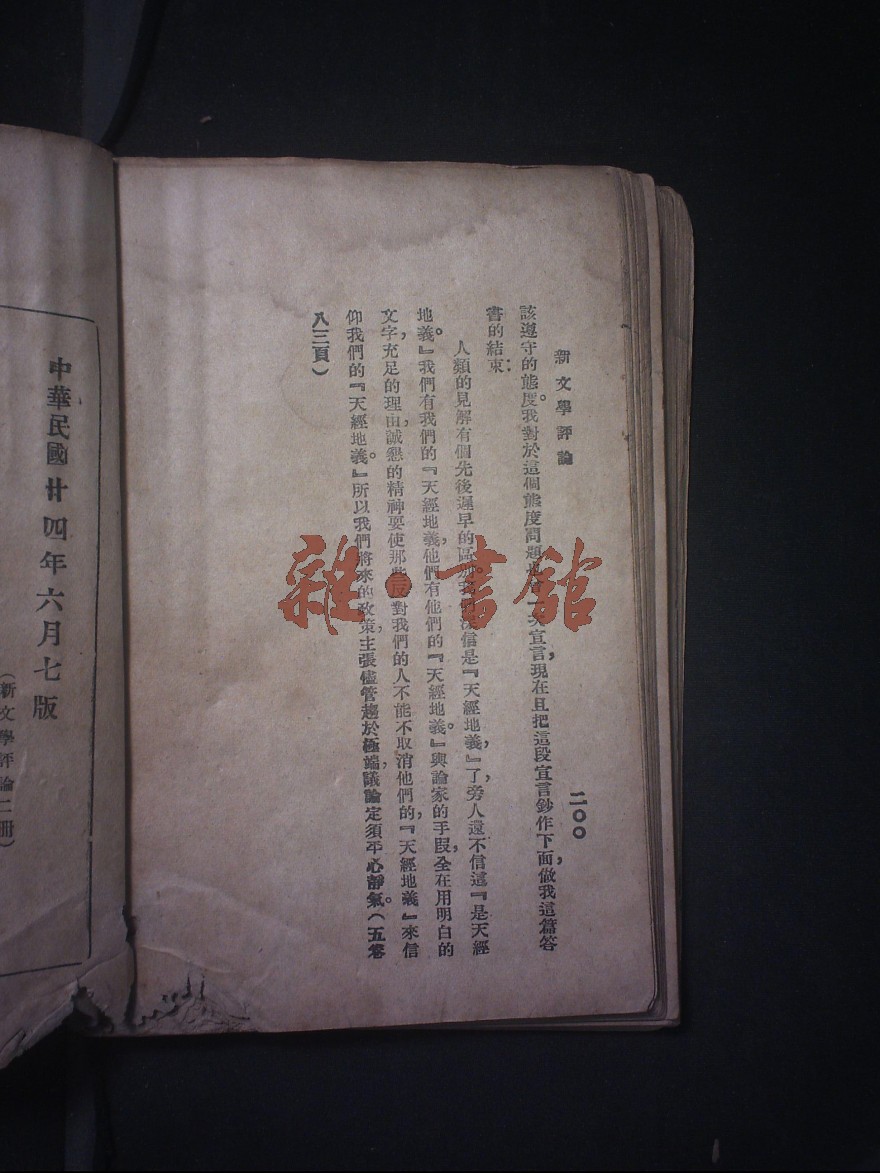 新文學評論
二〇〇
該遵守的態度。我對於這個態度問題也會一次宣言，現在且把這段宣言鈔作下面，做我這篇答
書的結束：
人類的見解有個先後遲早的區別。我們深信是『天經地義』了，旁人還不信這『是天經
地義。』我們有我們的『天經地義，他們有他們的『天經地義。』輿論家的手段，全在用明白的
文字，充足的理由，誠懇的精神，要使那些反對我們的人不能不取消他們的，『天經地義』來信
仰我們的『天經地義。』所以我們將來的政策，主張儘管趨於極端，議論定須平心靜氣。（五卷
八三頁）
中華民國廿四年六月七版
（新文學評論二冊）
雜·書館